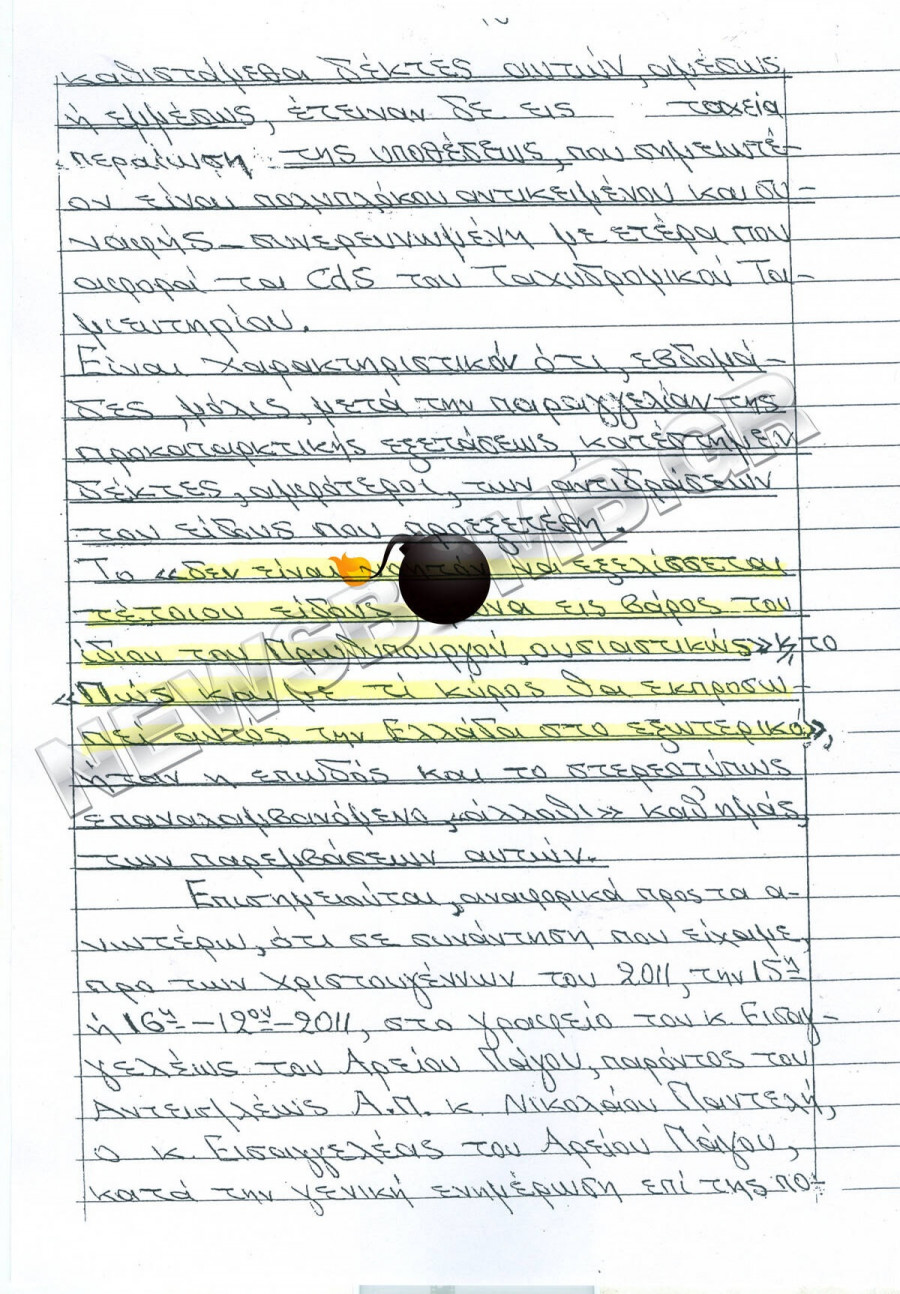 καθιστάμεθα δέκτες αυτών, αμέσως
ή εμμέσως, έτειναν δε εις ταχεία
περαίωση της υποθέσεως, που σημειωτέ-
ον είναι πολυπλόκου αντικειμένου και συ-
ναφής – συνερευνωμένη με ετέρα που
αφορά τα CdS του Ταχυδρομικού Τα-
μιευτηρίου.
Είναι χαρακτηριστικόν ότι, εβδομά-
δες, μόλις, μετά την παραγγελίαν της
προκαταρκτικής εξετάσεως, κατέστημεν
δέκτες, αμφότεροι, των αντιδράσεων
του είδους που προεξετέθη.
Το «δεν είναι νοητόν να εξελίσσεται
τέτοιου είδους εις βάρος του
ίδιου του Πρωθυπουργού, ουσιαστικώς» κ' το
«Πώς και με τί κύρος θα εκπροσω-
πεί αυτός την Ελλάδα στο εξωτερικό»,
ήταν η επωδός και το στερεοτύπως
επαναλαμβανόμενο «άλλοθι» καθ' ημάς,
των παρεμβάσεων αυτών.
Επισημειούται, αναφορικά προς τα α-
νωτέρω, ότι σε συνάντηση που είχαμε,
προ των Χριστουγέννων του 2011, την 15η
ή 16η – 12ου – 2011, στο γραφείο του κ. Εισαγ-
γελέως του Αρείου Πάγου, παρόντος του
Αντεισ/λέως Α.Π. κ. Νικολάου Παντελή,
ο κ. Εισαγγελέας του Αρείου Πάγου,
κατά την γενική ενημέρωση επί της πο-
NEWSBOMB.GR